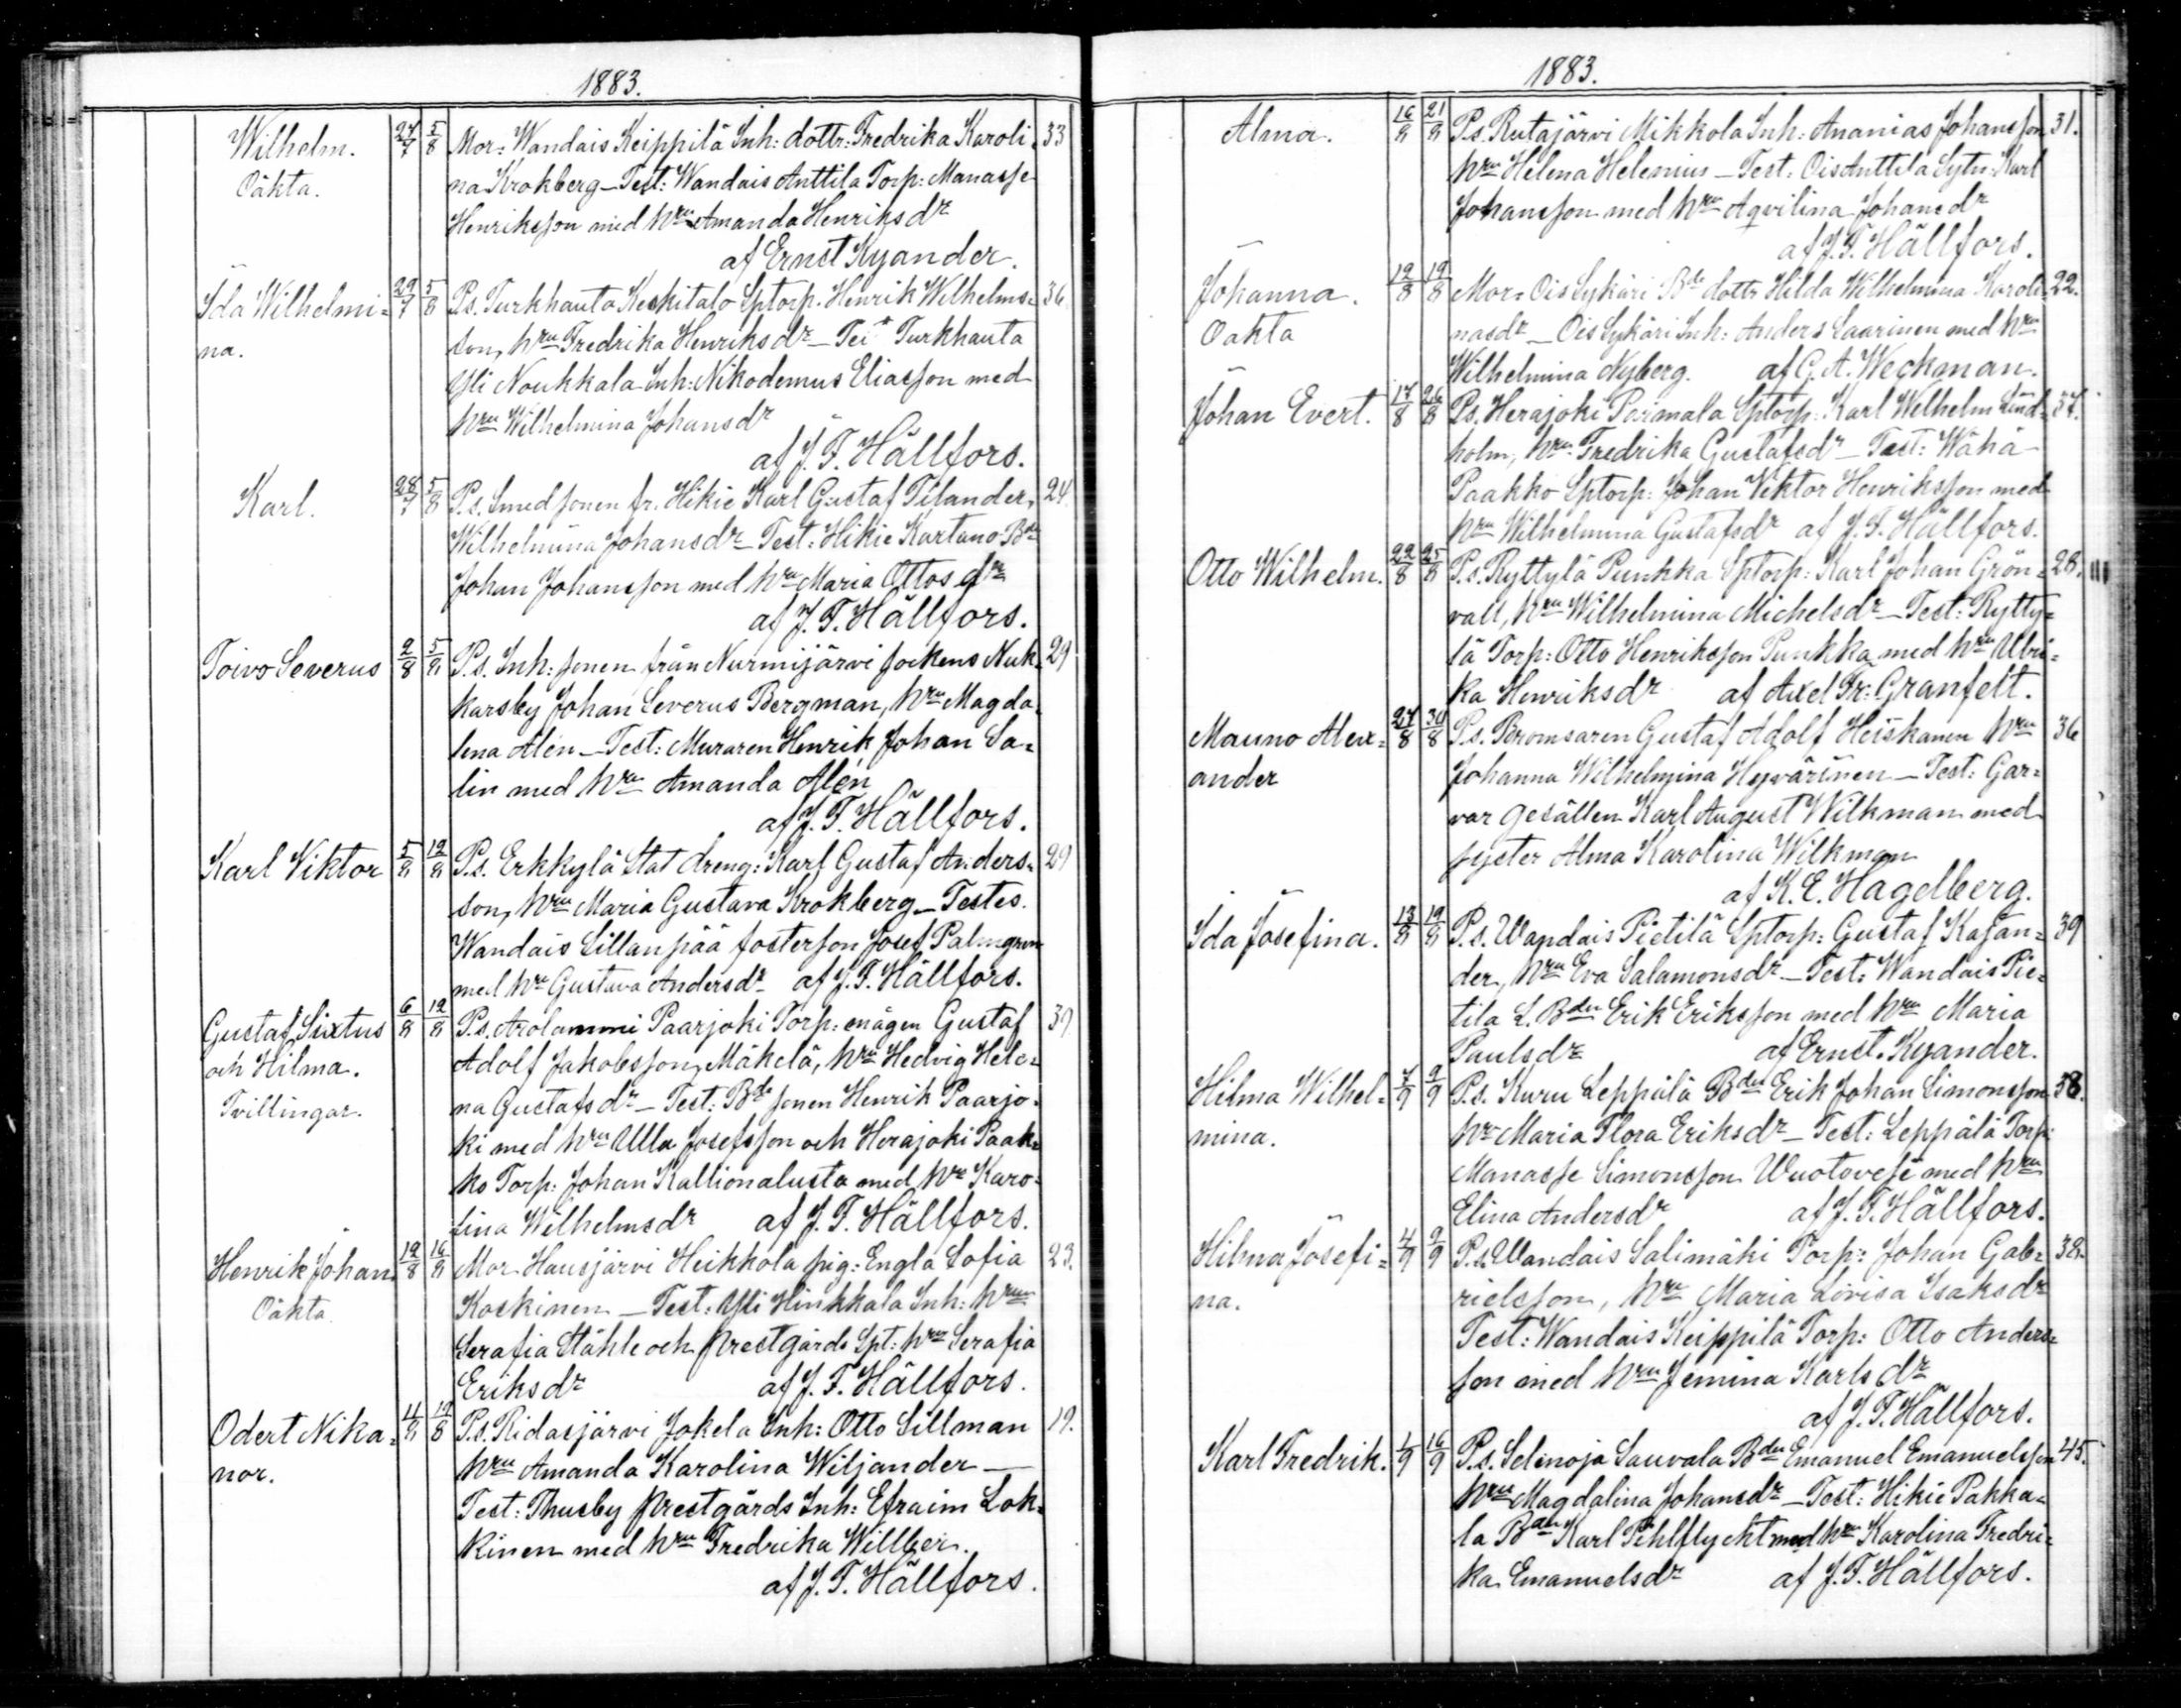 1883.
Wilhelm. 27/7 5/8 Mor: Wandais Keippilä Inh: dottr: Fredrika Karoli- 33
Oäkta. na Krokberg _ Test: Wandais Anttila Torp: Manasse
Henriksson med hru Amanda Henriksdr
af Ernst Kyander.
Ida Wilhelmi= 29/7 5/8 P.s. Turkhauta Keskitalo Sptorp. Henrik Wilhelms- 36
na. son, hru Fredrika Henriksdr _ Test Turkhauta
Yli Noukkala Inh: Nikodemus Eliasson med
hru Wilhelmina Johansdr
af J. F. Hällfors.
Karl. 28/7 5/8 P.s. Smedsonen fr. Hikie Karl Gustaf Tilander, 24
Wilhelmina Johansdr _ Test: Hikie Kartano Bde
Johan Johansson med hru Maria Ottosdr
af J. F. Hällfors.
Toivo Severus 2/8 5/8 P.s. Inh: sonen från Nurmijärvi sockens Nuk- 29
karsby Johan Severus Bergman, hru Magda-
lena Alén _ Test: Muraren Henrik Johan Sa-
lin med hru Amanda Alén
af J. F. Hällfors.
Karl Viktor 5/8 12/8 P.s. Erkkylä Stat dreng: Karl Gustaf Anders- 29
son, hru Maria Gustava Krokberg _ Testes.
Wandais Sillanpää fosterson Josef Palmgren
med hru Gustava Andersdr af J. F. Hällfors.
Gustaf Sixtus 6/8 12/8 P.s. Arolammi Paarjoki Torp: mågen Gustaf 39
och Hilma. Adolf Jakobsson Mäkelä, hru Hedvig Hele-
Tvillingar. na Gustafsdr _ Test: Bde sonen Henrik Paarjo-
ki med hru Ulla Josefsson och Herajoki Paak-
ko Torp: Johan Kallionalusta med hru Karo-
lina Wilhelmsdr af J. F. Hällfors.
Henrik Johan 12/8 16/8 Mor Hausjärvi Heikkola pig: Engla Sofia 23.
Oäkta. Koskinen _ Test: Yli Hinkkala Inh: hrun
Serafia Ståhle och prestgårds Spt: hru Serafia
Eriksdr af J. F. Hällfors.
Odert Nika= 4/8 19/8 P.s. Ridasjärvi Jokela Inh: Otto Sillman 19.
nor. hru Amanda Karolina Wiljander _
Test: Thusby prestgårds Inh: Efraim Lok-
kinen med hru Fredrika
af J. F. Hällfors.
1883.
Alma. 16/8 21/8 P.s. Rutajärvi Mikkola Inh: Ananias Johansson 31.
hru Helena Helenius _ Test: Ois Anttila Sytn: Karl
Johansson med hru Aqvilina Johansdr
af J. F. Hällfors.
Johanna. 12/8 19/8 Mor: Ois Sykäri Bde dottr Hilda Wilhelmina Karoli- 22.
Oäkta nasdr _ Ois Sykäri Inh: Anders Saarinen med hru
Wilhelmina Nyberg. af G. A. Weckman.
Johan Evert. 17/8 26/8 P.s. Herajoki Parmala Sptorp: Karl Wilhelm Lind- 37.
holm, hru Fredrika Gustafsdr _ Test: Wähä
Paakko Sptorp: Johan Viktor Henriksson med
hru Wilhelmina Gustafsdr af J. F. Hällfors.
Otto Wilhelm. 22/8 25/8 P.s. Ryttylä Punkka Sptorp: Karl Johan Grön= 28.
vall, hru Wilhelmina Michelsdr _ Test: Rytty=
lä Torp: Otto Henriksson Punkka med hru Ulri=
ka Henriksdr af Axel Fr: Granfelt.
Mauno Alex= 27/8 30/8 P.s. Bromsaren Gustaf Adolf Heiskanen hru 36
ander Johanna Wilhelmina Hyvärinen _ Test: Gar=
var gesällen Karl August Wilkman med
syster Alma Karolina Wilkman
af K. E. Hagelberg.
Ida Josefina. 13/8 19/8 P.s. Wandais Pietilä Sptorp: Gustaf Kajan= 39
der, hru Eva Salamonsdr _ Test: Wandais Pie=
tilä L. Bden Erik Eriksson med hru Maria
Paulsdr af Ernst Kyander.
Hilma Wilhel= 7/9 9/9 P.s. Kuru Leppälä Bden Erik Johan Simonsson 38.
mina. hru Maria Flora Eriksdr _ Test: Leppälä Torp:
Manasse Simonsson Wuotovesi med hru
Elina Andersdr af J. F. Hällfors.
Hilma Josefi= 4/9 9/9 P.s. Wandais Salimäki Torp: Johan Gab= 32.
na. rielsson, hru Maria Lovisa Isaksdr
Test: Wandais Keippilä Torp: Otto Anders=
son med hru Jemina Karlsdr
af J. F. Hällfors.
Karl Fredrik. 1/9 16/9 P.s. Selinoja Sauvala Bden Emanuel Emanuelsson 45.
hru Magdalina Johansdr _ Test: Hikie Pakka=
la Bden Karl Pihlflycht med hru Karolina Fredri=
ka Emanuelsdr af J. F. Hällfors.